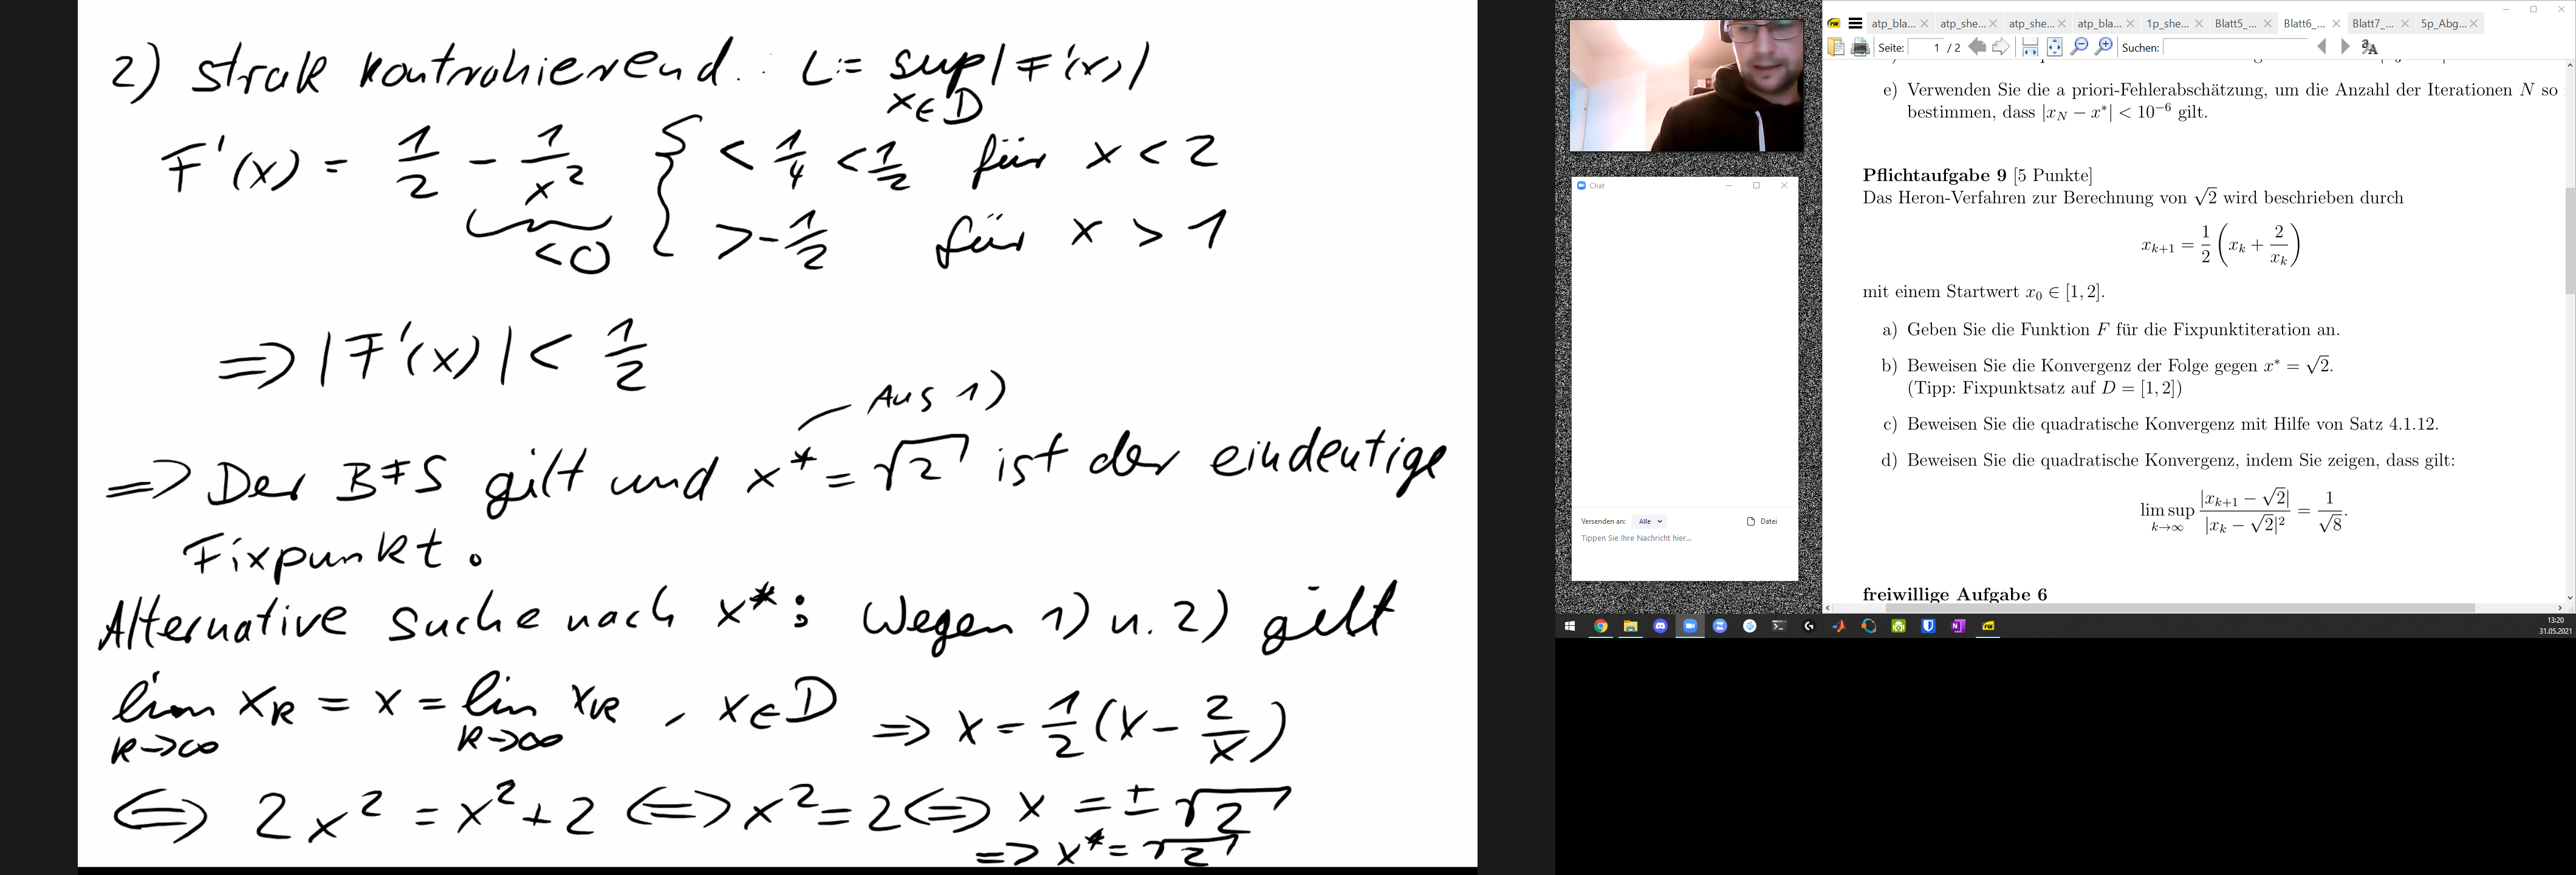 2) strak kontrahierend. L:= sup |F'(x)|
x∈D
F'(x) = 1/2 - 1/x² { < 1/4 < 1/2 für x < 2
<0 > -1/2 für x > 1
=> |F'(x)| < 1/2
Aus 1)
=> Der BFS gilt und x* = √2 ist der eindeutige
Fixpunkt.
Alternative suche nach x*: Wegen 1) u. 2) gilt
lim x_k = x = lim x_k, x∈D => x = 1/2 (x - 2/x)
k→∞ k→∞
<=> 2x² = x² + 2 <=> x² = 2 <=> x = ±√2
=> x* = √2
Chat
Versenden an: Alle Datei
Tippen Sie Ihre Nachricht hier...
atp_bla... atp_she... atp_she... atp_bla... 1p_she... Blatt5_... Blatt6_... Blatt7_... 5p_Abg...
Seite: 1 / 2 Suchen:
e) Verwenden Sie die a priori-Fehlerabschätzung, um die Anzahl der Iterationen N so
bestimmen, dass |x_N − x*| < 10⁻⁶ gilt.
Pflichtaufgabe 9 [5 Punkte]
Das Heron-Verfahren zur Berechnung von √2 wird beschrieben durch
x_{k+1} = 1/2 (x_k + 2/x_k)
mit einem Startwert x_0 ∈ [1, 2].
a) Geben Sie die Funktion F für die Fixpunktiteration an.
b) Beweisen Sie die Konvergenz der Folge gegen x* = √2.
(Tipp: Fixpunktsatz auf D = [1, 2])
c) Beweisen Sie die quadratische Konvergenz mit Hilfe von Satz 4.1.12.
d) Beweisen Sie die quadratische Konvergenz, indem Sie zeigen, dass gilt:
lim sup_{k→∞} |x_{k+1} − √2| / |x_k − √2|² = 1/√8.
freiwillige Aufgabe 6
13:20
31.05.2021